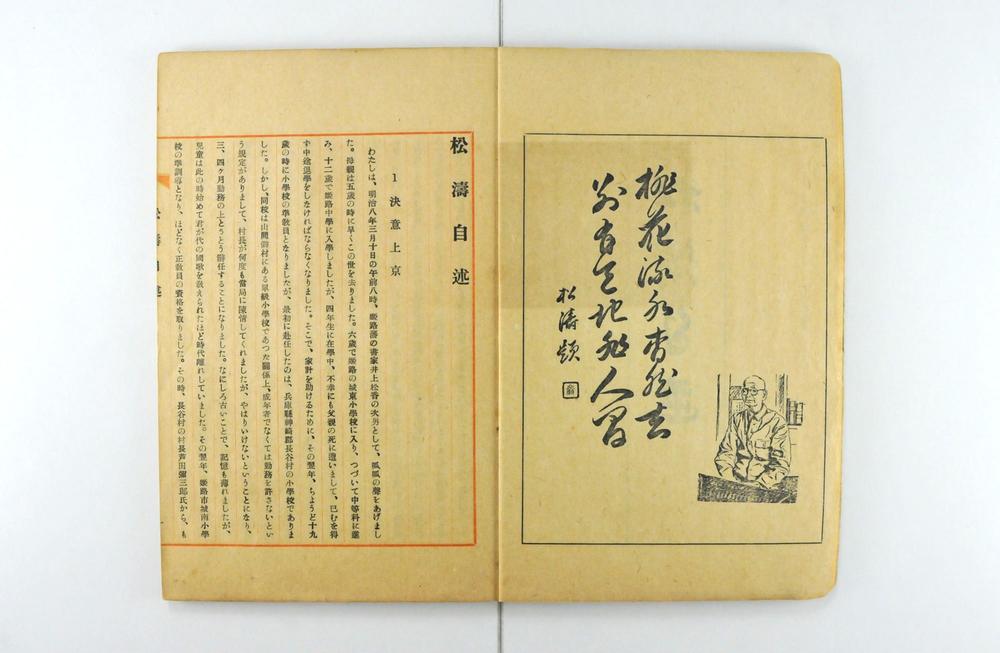 桃花流水杳然去
別有天地非人間
松濤題
松濤自述
1 決意上京
わたしは、明治八年三月十日の午前八時、姫路藩の書家井上松香の次男として、呱呱の聲をあげまし
た。母親は五歳の時に早くこの世を去りました。六歳で姫路の城東小學校に入り、つづいて中等科に進
み、十二歳で姫路中學に入學しましたが、四年生に在學中、不幸にも父親の死に遭いまして、已むを得
ず中途退學をしなければならなくなりました。そこで、家計を助けるために、その翌年、ちようど十九
歳の時に小學校の準敎員となりましたが、最初に赴任したのは、兵庫縣神崎郡長谷村の小學校でありま
した。しかし、同校は山間僻村にある單級小學校であつた關係上、成年者でなくては勤務を許さないとい
う規定がありまして、村長が何度も當局に陳情してくれましたが、やはりいけないということになり、
三、四ケ月勤務の上とうとう辭任することになりました。なにしろ古いことで、記憶も薄れましたが、
兒童は此の時始めて君が代の國歌を敎えられたほど時代離れしていました。その翌年、姫路市城南小學
校の準訓導となり、ほどなく正敎員の資格を取りました。その時、長谷村の村長芦田彌三郎氏から、も